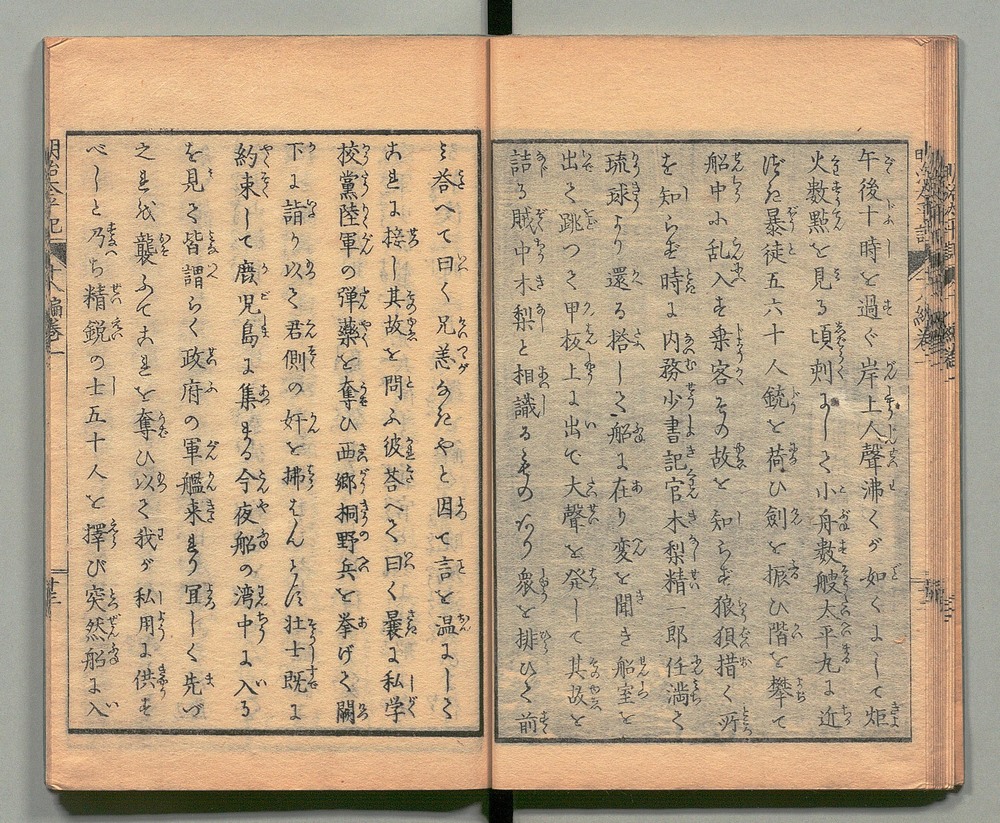 午後十時を過ぐ岸上人聲沸くが如くにして炬
火數點を見る頃刺にして小舟數艘太平丸に近
づき暴徒五六十人銃を荷ひ劍を振ひ階を攀て
船中に乱入す乗客その故を知らず狼狽措く所
を知らず時に内務少書記官木梨精一郎任満て
琉球より還る搭して船に在り変を聞き船室を
出て跳つて甲板上に出で大聲を発して其故を
詰る賊中木梨と相識るものあり衆を排ひて前
み答へて曰く兄恙なきやと因て言を温にして
これに接し其故を問ふ彼答へて曰く曩に私学
校黨陸軍の弾藥を奪ひ西郷桐野兵を挙げて闕
下に詣り以て君側の奸を拂はんとす壮士既に
約束して鹿児島に集まる今夜船の湾中に入る
を見て皆謂らく政府の軍艦来まり宜しく先づ
之を襲ふてこれを奪ひ以て我が私用に供す
べしと乃ち精鋭の士五十人を擇び突然船に入
明治太平記
十八編巻一